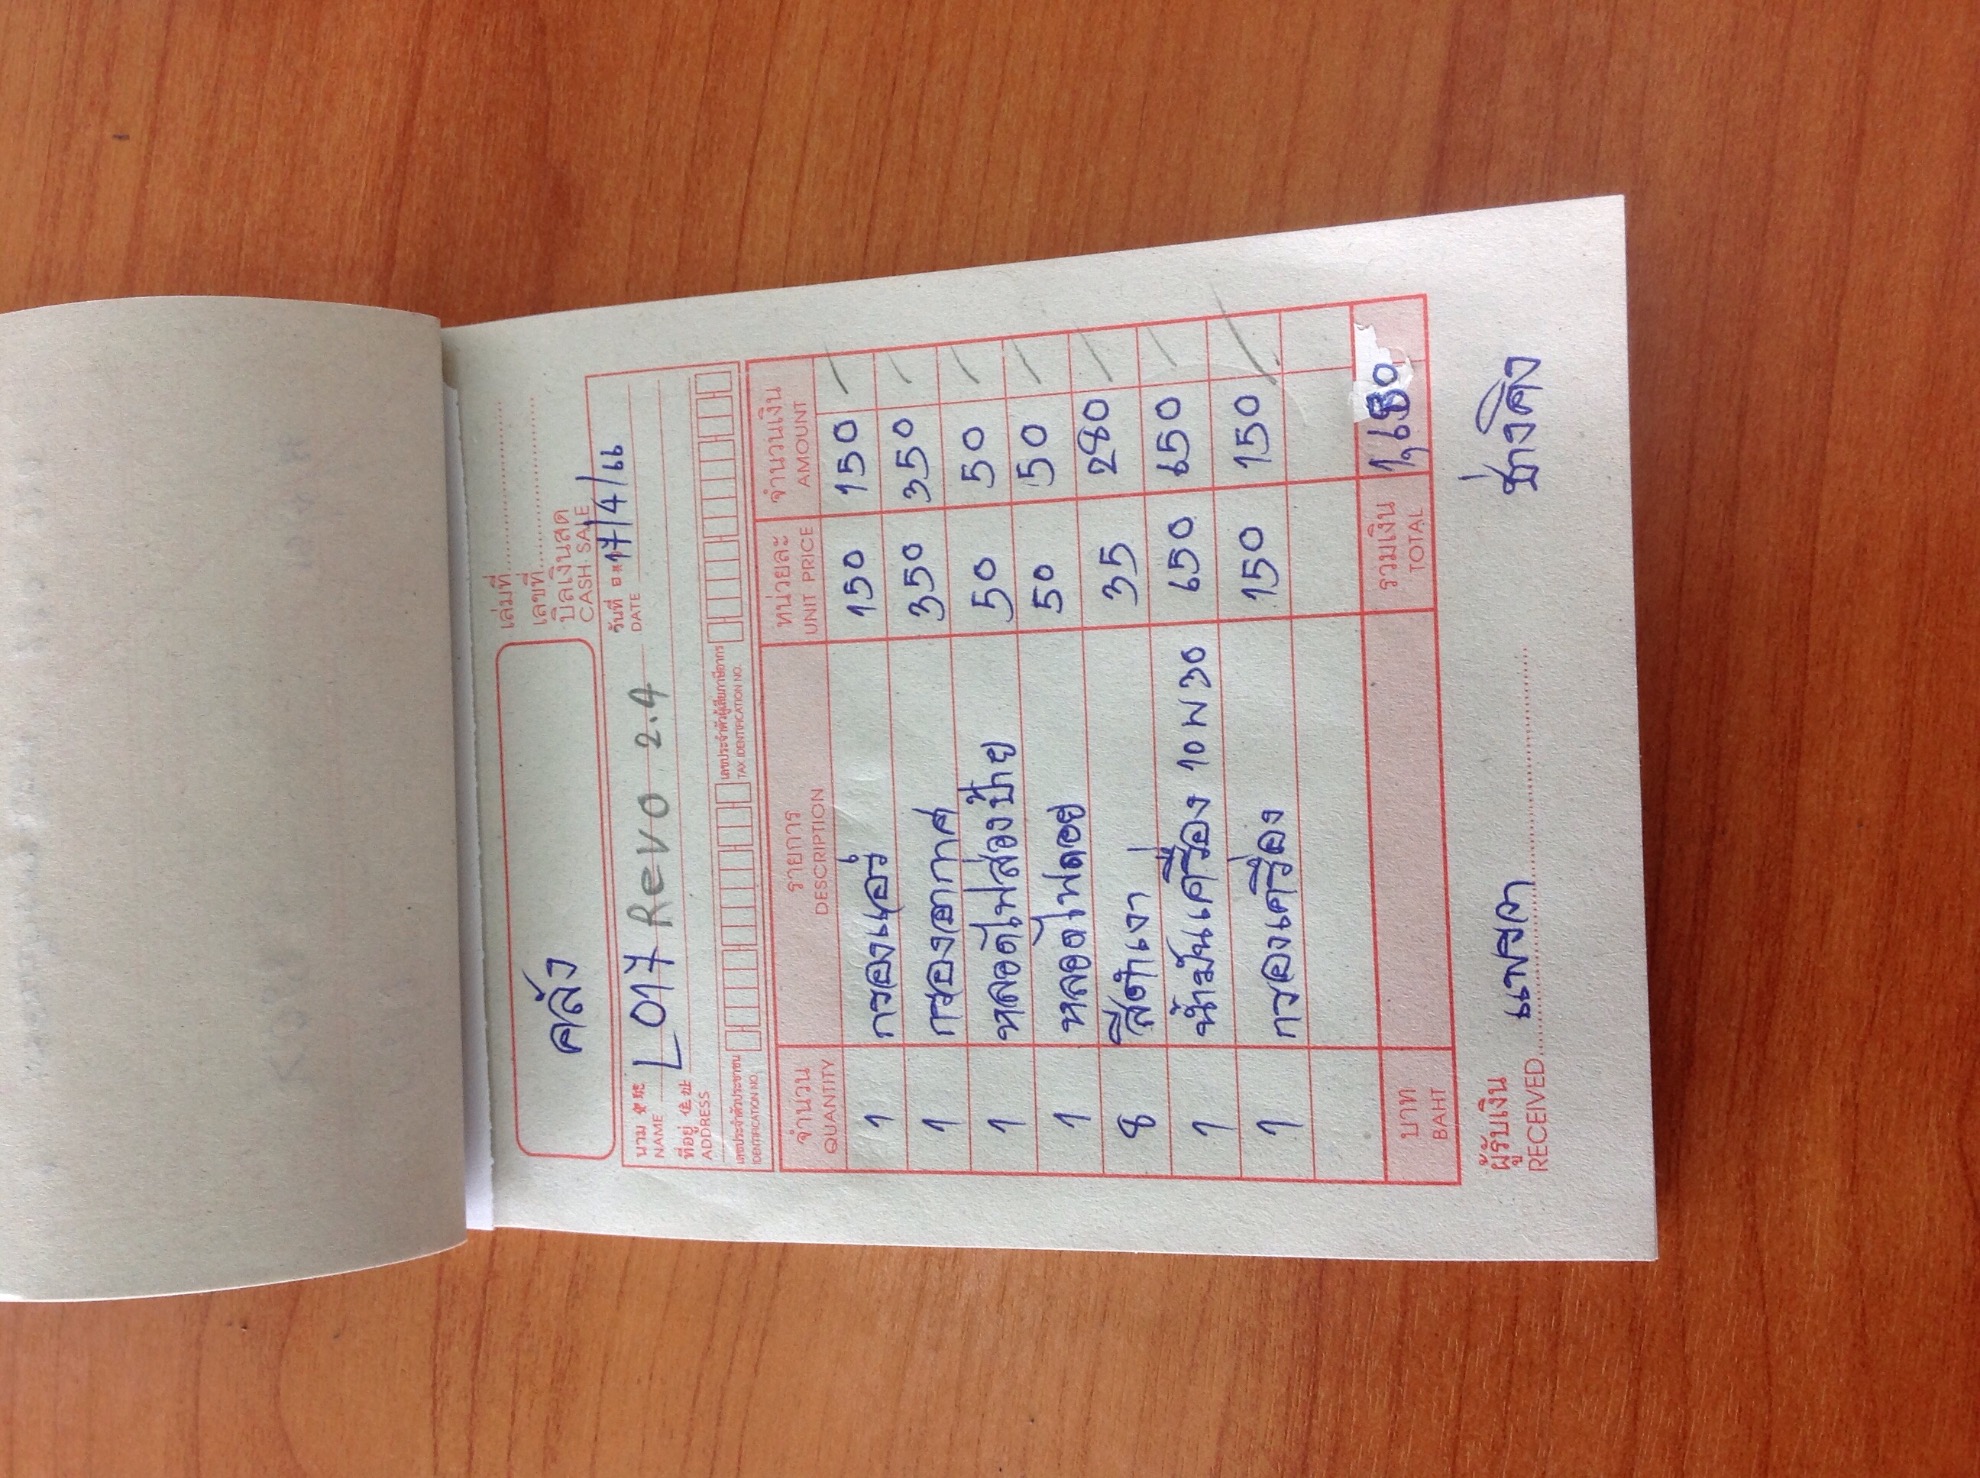 คลัง
เล่มที่
เลขที่
บิลเงินสด
CASH SALE
วันที่ 17/4/66
DATE
นาม L017 Revo 2.4
NAME
ที่อยู่
ADDRESS
เลขประจำตัวประชาชน เลขประจำตัวผู้เสียภาษีอากร
IDENTIFICATION NO. TAX IDENTIFICATION NO.
จำนวน รายการ หน่วยละ จำนวนเงิน
QUANTITY DESCRIPTION UNIT PRICE AMOUNT
1 กรองแอร์ 150 150
1 กรองอากาศ 350 350
1 หลอดไฟส่องป้าย 50 50
1 หลอดไฟถอย 50 50
8 สีดำเงา 35 280
1 น้ำมันเครื่อง 10 W 30 650 650
1 กรองเครื่อง 150 150
บาท รวมเงิน 1,680
BAHT TOTAL
ผู้รับเงิน ช่างคิง
RECEIVED